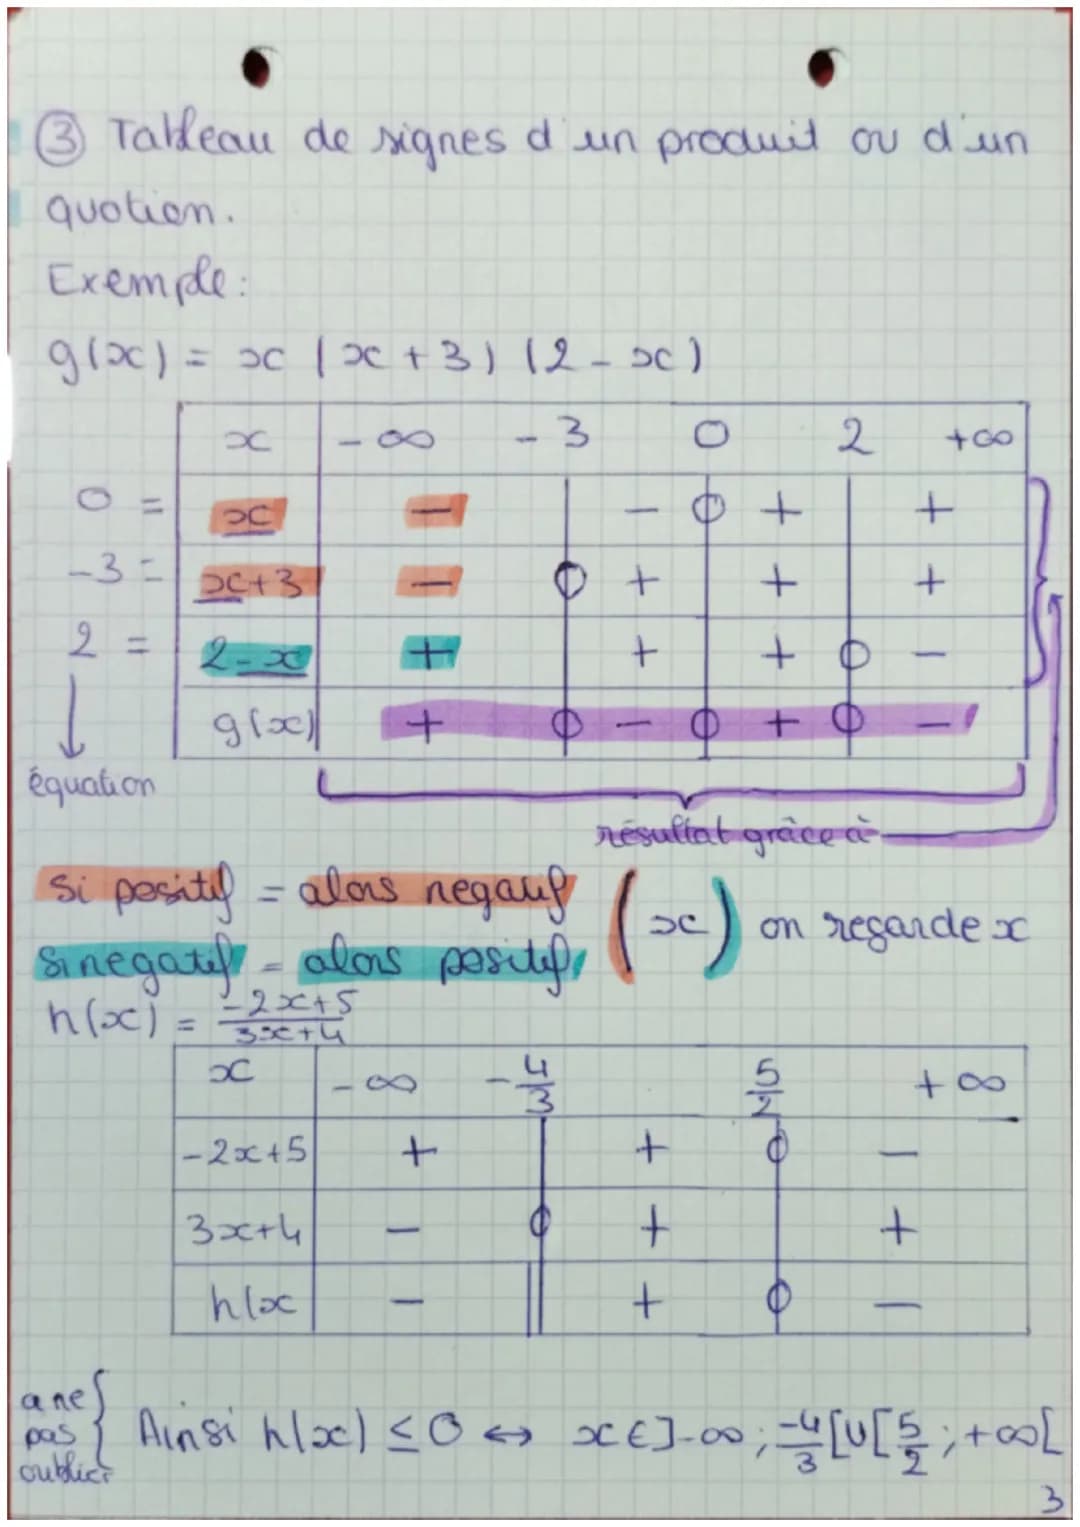 ③ Tableau de signes d'un produit ou d'un
quotien.
Exemple:
g(x) = x (x+3) (2-x)
x -∞ -3 0 2 +∞
0 = x - - 0 + +
-3 = x+3 - 0 + + +
2 = 2-x + + + 0 -
g(x) + 0 - 0 + 0 -
équation
résultat grâce à
si positif = alors negatif
si negatif = alors positif
(x) on regarde x
h(x) = -2x+5 / 3x+4
x -∞ -4/3 5/2 +∞
-2x+5 + + 0 -
3x+4 - 0 + +
h(x - || + 0 -
a ne
pas
oublier
{ Ainsi h(x) ≤ 0 ↔ x ∈ ]-∞ ; -4/3 [ U [ 5/2 ; +∞ [
3